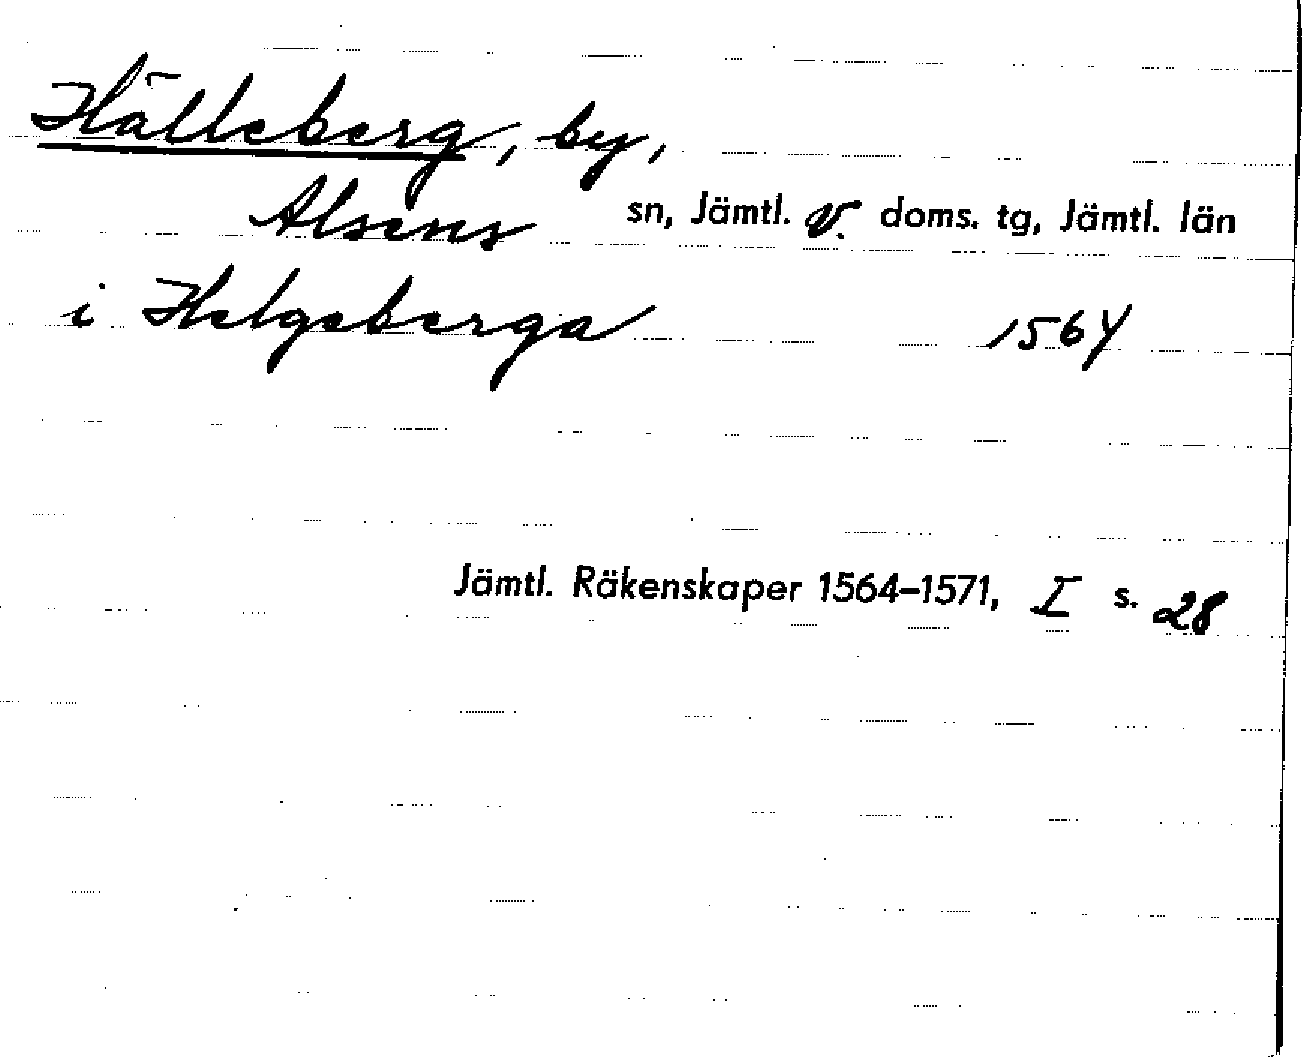 Hälleberg, by,
Alsens sn, Jämtl. v. doms. tg, Jämtl. län
i Helgeberga 1564
Jämtl. Räkenskaper 1564–1571, I s. 28